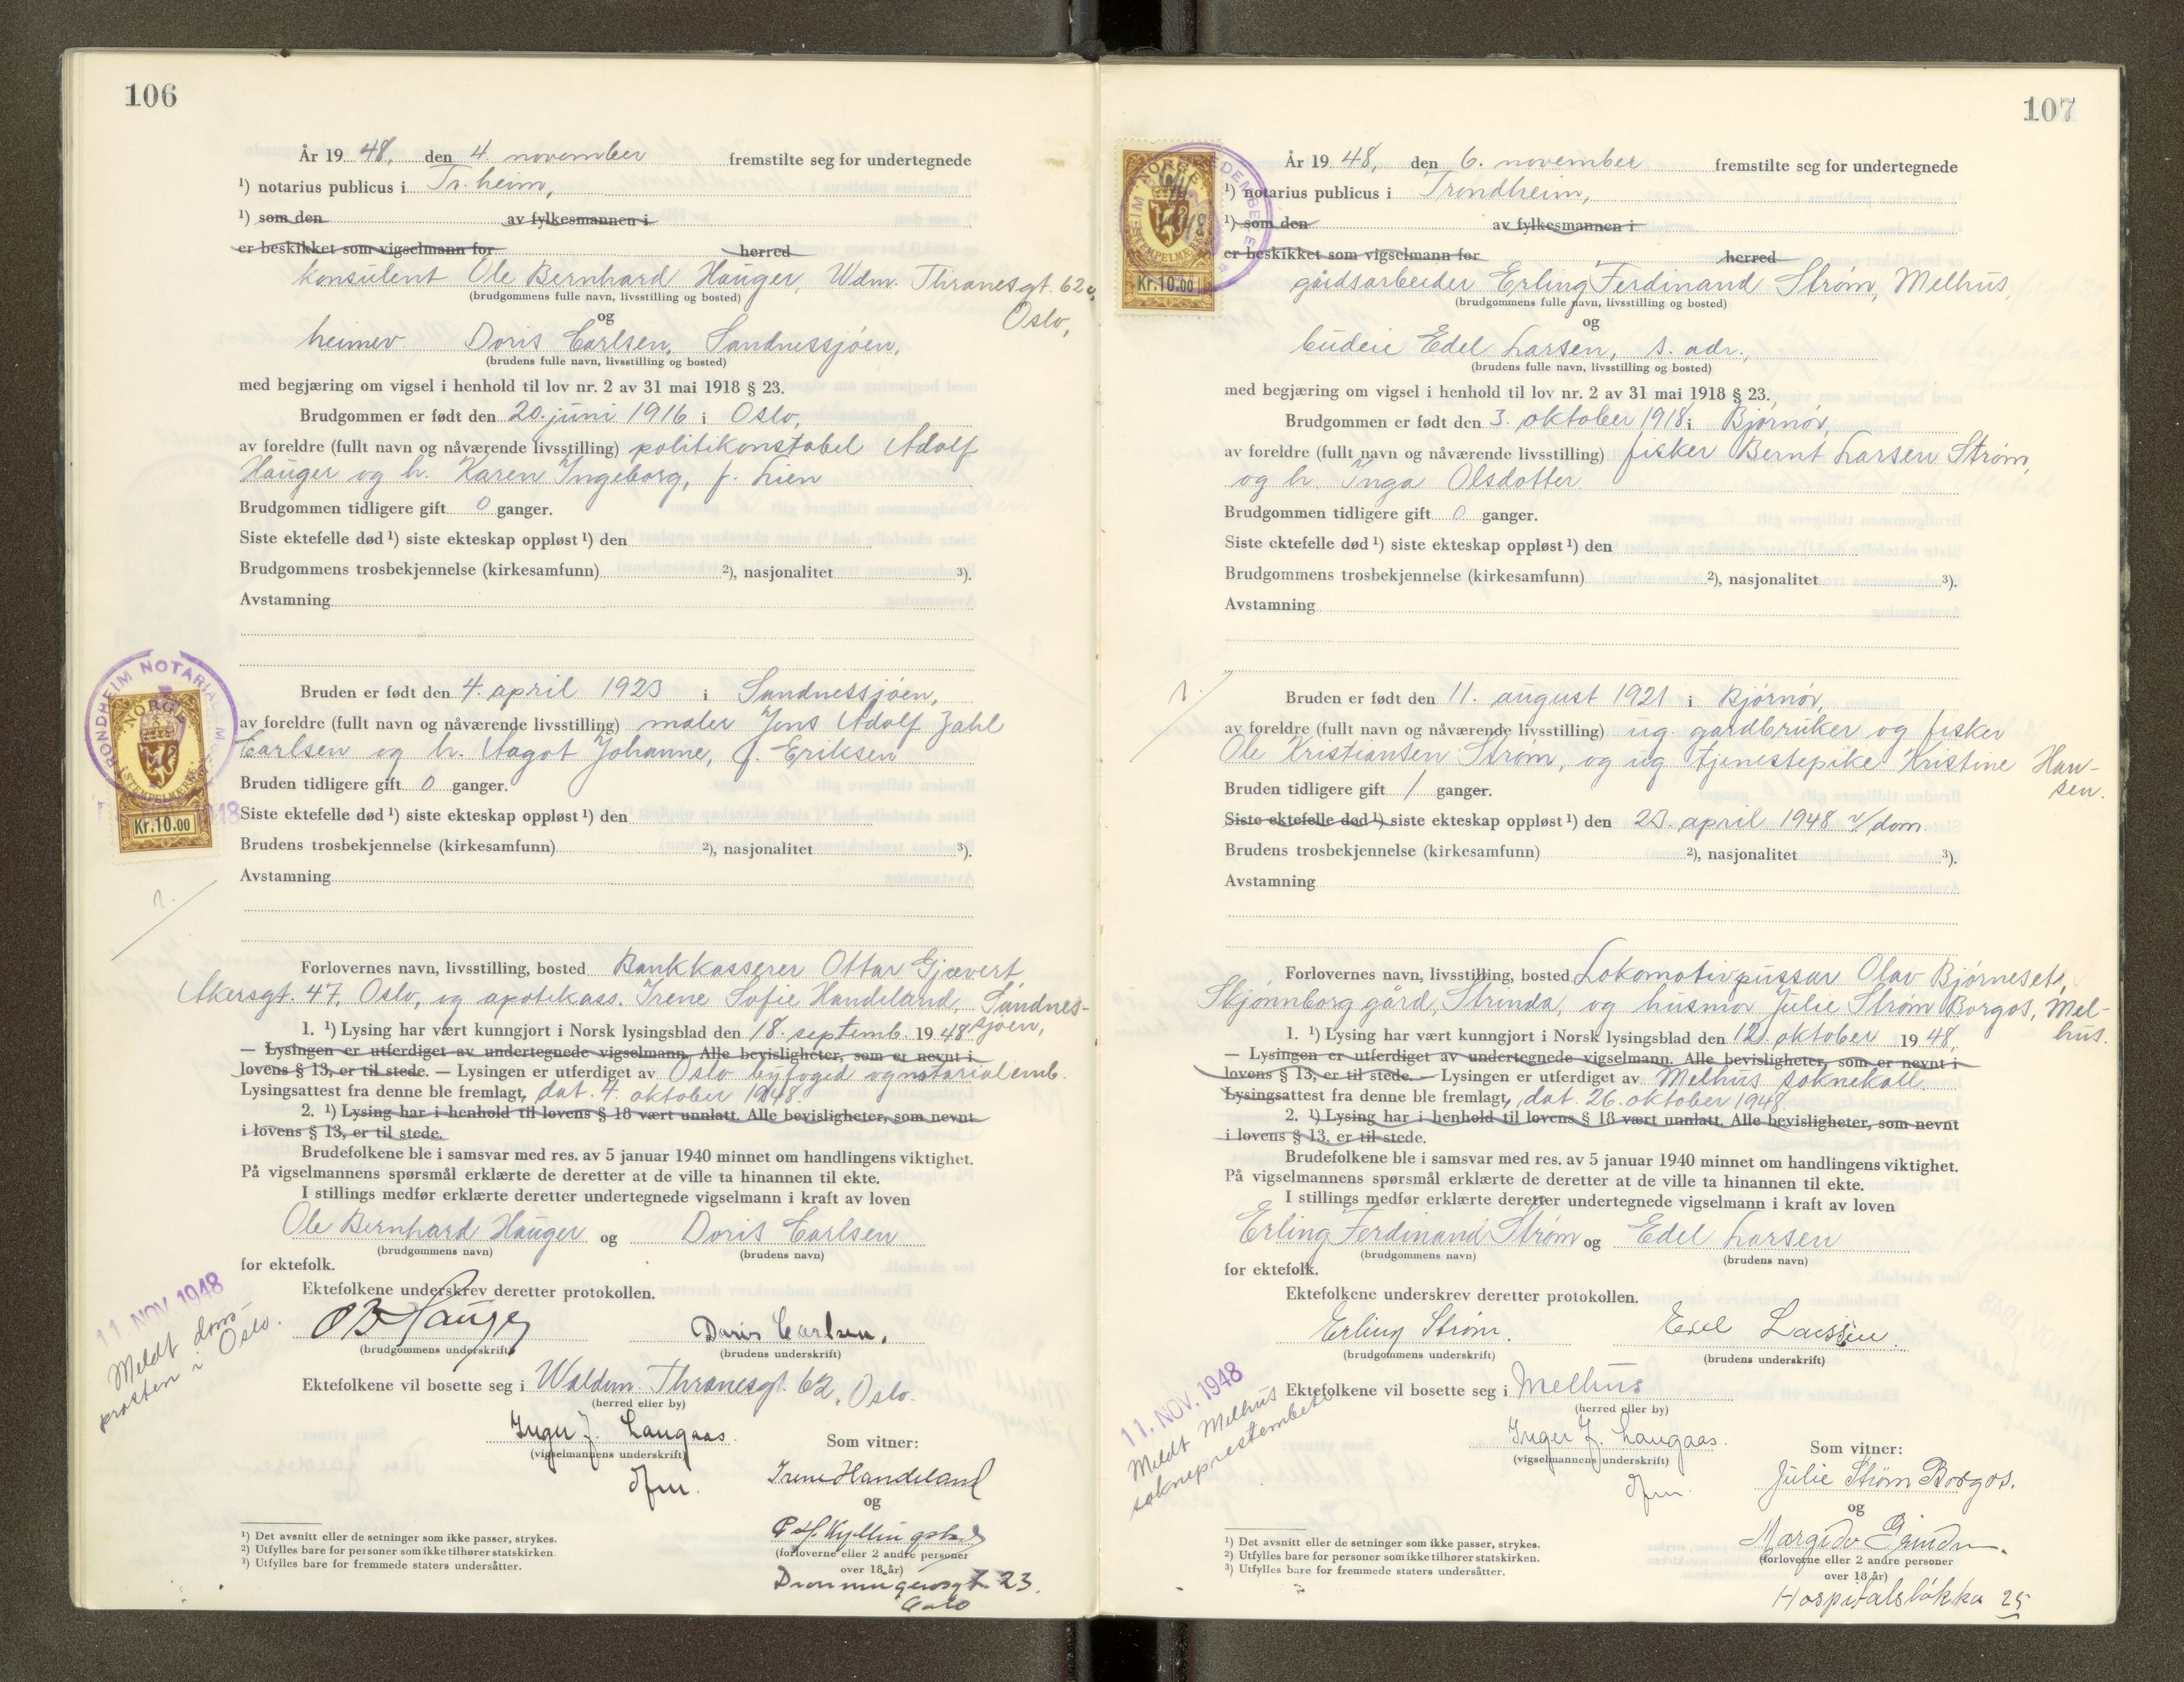 106
År 19 48, den 4. november fremstilte seg for undertegnede
¹) notarius publicus i Tr.heim,
¹) som den av fylkesmannen i
er beskikket som vigselmann for herred
konsulent Ole Bernhard Hauger, Wdm. Thranesgt. 62c,
(brudgommens fulle navn, livsstilling og bosted)
Oslo,
og
heimev. Doris Carlsen, Sandnessjøen,
(brudens fulle navn, livsstilling og bosted)
med begjæring om vigsel i henhold til lov nr. 2 av 31 mai 1918 § 23.
Brudgommen er født den 20. juni 1916 i Oslo,
av foreldre (fullt navn og nåværende livsstilling) politikonstabel Adolf
Hauger og h. Karen Ingeborg, f. Lien
Brudgommen tidligere gift 0 ganger.
Siste ektefelle død ¹) siste ekteskap oppløst ¹) den
Brudgommens trosbekjennelse (kirkesamfunn) ²), nasjonalitet ³).
Avstamning
TRONDHEIM NOTARIA
NORGE
STEMPELMERKE
Kr.10.00
Bruden er født den 4. april 1923 i Sandnessjøen,
av foreldre (fullt navn og nåværende livsstilling) maler Jens Adolf Zahl
Carlsen og h. Aagot Johanne, f. Eriksen
Bruden tidligere gift 0 ganger.
Siste ektefelle død ¹) siste ekteskap oppløst ¹) den
Brudens trosbekjennelse (kirkesamfunn) ²), nasjonalitet ³).
Avstamning
Forlovernes navn, livsstilling, bosted Bankkasserer Ottar Gjævert
Akersgt. 47, Oslo, og apotekass. Irene Sofie Handeland, Sandnes-
sjøen,
1. ¹) Lysing har vært kunngjort i Norsk lysingsblad den 18. septemb. 19 48
— Lysingen er utferdiget av undertegnede vigselmann. Alle bevisligheter, som er nevnt i
lovens § 13, er til stede. — Lysingen er utferdiget av Oslo byfoged og notarialemb.
Lysingsattest fra denne ble fremlagt, dat. 4. oktober 1948.
2. ¹) Lysing har i henhold til lovens § 18 vært unnlatt. Alle bevisligheter, som nevnt
i lovens § 13, er til stede.
Brudefolkene ble i samsvar med res. av 5 januar 1940 minnet om handlingens viktighet.
På vigselmannens spørsmål erklærte de deretter at de ville ta hinannen til ekte.
I stillings medfør erklærte deretter undertegnede vigselmann i kraft av loven
Ole Bernhard Hauger og Doris Carlsen
(brudgommens navn) (brudens navn)
for ektefolk.
Ektefolkene underskrev deretter protokollen.
11 NOV. 1948
Meldt doms-
prosten i Oslo.
OB Hauger Doris Carlsen.
(brudgommens underskrift) (brudens underskrift)
Ektefolkene vil bosette seg i Waldem. Thranesgt. 62, Oslo.
(herred eller by)
Inger J. Langaas
(vigselmannens underskrift)
dfm.
Som vitner:
Irene Handeland
og
P. H. Kyllingstad
(forloverne eller 2 andre personer
over 18 år)
Dronningensgt. 23.
Oslo
¹) Det avsnitt eller de setninger som ikke passer, strykes.
²) Utfylles bare for personer som ikke tilhører statskirken.
³) Utfylles bare for fremmede staters undersåtter.
107
NORGE
STEMPELMERKE
Kr.10.00
År 19 48, den 6. november fremstilte seg for undertegnede
¹) notarius publicus i Trondheim,
¹) som den av fylkesmannen i
er beskikket som vigselmann for herred
gårdsarbeider Erling Ferdinand Strøm, Melhus,
(brudgommens fulle navn, livsstilling og bosted)
og
budeie Edel Larsen, s. adr.,
(brudens fulle navn, livsstilling og bosted)
med begjæring om vigsel i henhold til lov nr. 2 av 31 mai 1918 § 23.
Brudgommen er født den 3. oktober 1918 i Bjørnør,
av foreldre (fullt navn og nåværende livsstilling) fisker Bernt Larsen Strøm,
og h. Inga Olsdotter
Brudgommen tidligere gift 0 ganger.
Siste ektefelle død ¹) siste ekteskap oppløst ¹) den
Brudgommens trosbekjennelse (kirkesamfunn) ²), nasjonalitet ³).
Avstamning
Bruden er født den 11. august 1921 i Bjørnør,
av foreldre (fullt navn og nåværende livsstilling) ug. gardbruker og fisker
Ole Kristiansen Strøm, og ug. tjenestepike Kristine Han-
sen.
Bruden tidligere gift 1 ganger.
Siste ektefelle død ¹) siste ekteskap oppløst ¹) den 23. april 1948 v/dom.
Brudens trosbekjennelse (kirkesamfunn) ²), nasjonalitet ³).
Avstamning
Forlovernes navn, livsstilling, bosted Lokomotivpusser Olav Bjørneset,
Skjønnborg gård, Strinda, og husmor Julie Strøm Borgos, Mel-
hus.
1. ¹) Lysing har vært kunngjort i Norsk lysingsblad den 12. oktober 19 48,
— Lysingen er utferdiget av undertegnede vigselmann. Alle bevisligheter, som er nevnt i
lovens § 13, er til stede. — Lysingen er utferdiget av Melhus soknekall
Lysingsattest fra denne ble fremlagt, dat. 26. oktober 1948.
2. ¹) Lysing har i henhold til lovens § 18 vært unnlatt. Alle bevisligheter, som nevnt
i lovens § 13, er til stede.
Brudefolkene ble i samsvar med res. av 5 januar 1940 minnet om handlingens viktighet.
På vigselmannens spørsmål erklærte de deretter at de ville ta hinannen til ekte.
I stillings medfør erklærte deretter undertegnede vigselmann i kraft av loven
Erling Ferdinand Strøm og Edel Larsen
(brudgommens navn) (brudens navn)
for ektefolk.
Ektefolkene underskrev deretter protokollen.
Erling Strøm. Edel Larsen
(brudgommens underskrift) (brudens underskrift)
11. NOV. 1948
Meldt Melhus
sokneprestembete
Ektefolkene vil bosette seg i Melhus
(herred eller by)
Inger J. Langaas.
(vigselmannens underskrift)
dfm.
Som vitner:
Julie Strøm Borgos.
og
(forloverne eller 2 andre personer
over 18 år)
Hospitalsløkka 25
¹) Det avsnitt eller de setninger som ikke passer, strykes.
²) Utfylles bare for personer som ikke tilhører statskirken.
³) Utfylles bare for fremmede staters undersåtter.